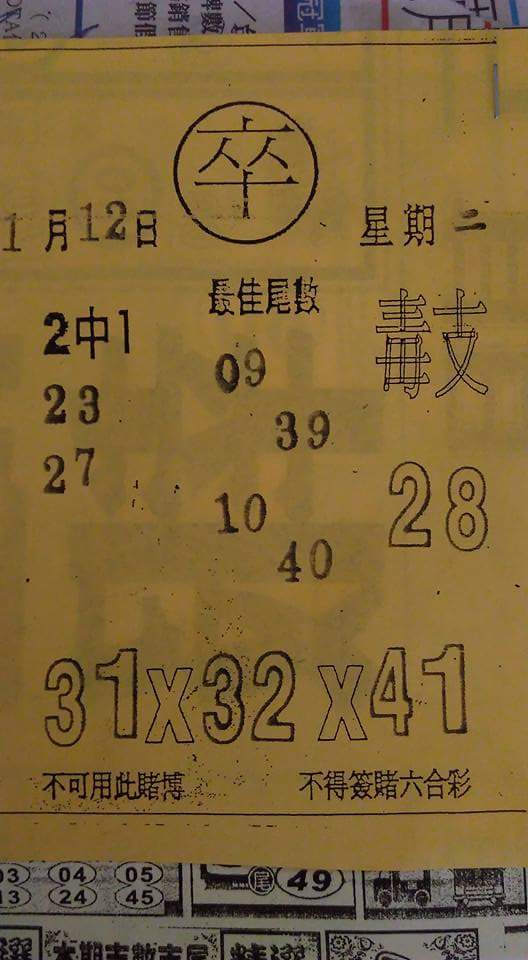 卒
1月12日 星期二
2中1 最佳尾數
23 09
27 39
10
40
28
31x32x41
不可用此賭博 不得簽賭六合彩
03 04 05
13 24 45
尾 49